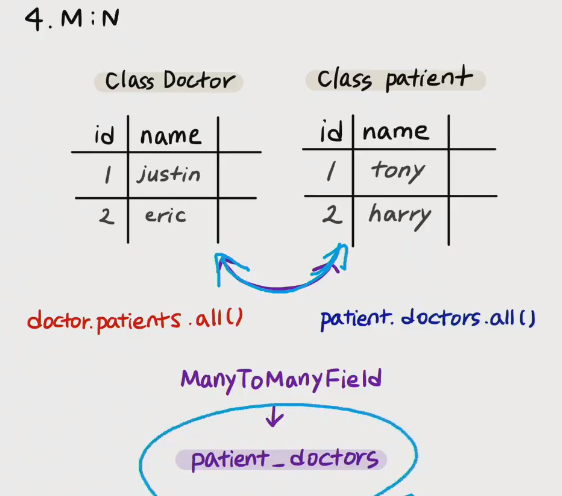 4. M:N
Class Doctor
id name
1 justin
2 eric
Class patient
id name
1 tony
2 harry
doctor.patients.all()
patient.doctors.all()
ManyToManyField
patient_doctors